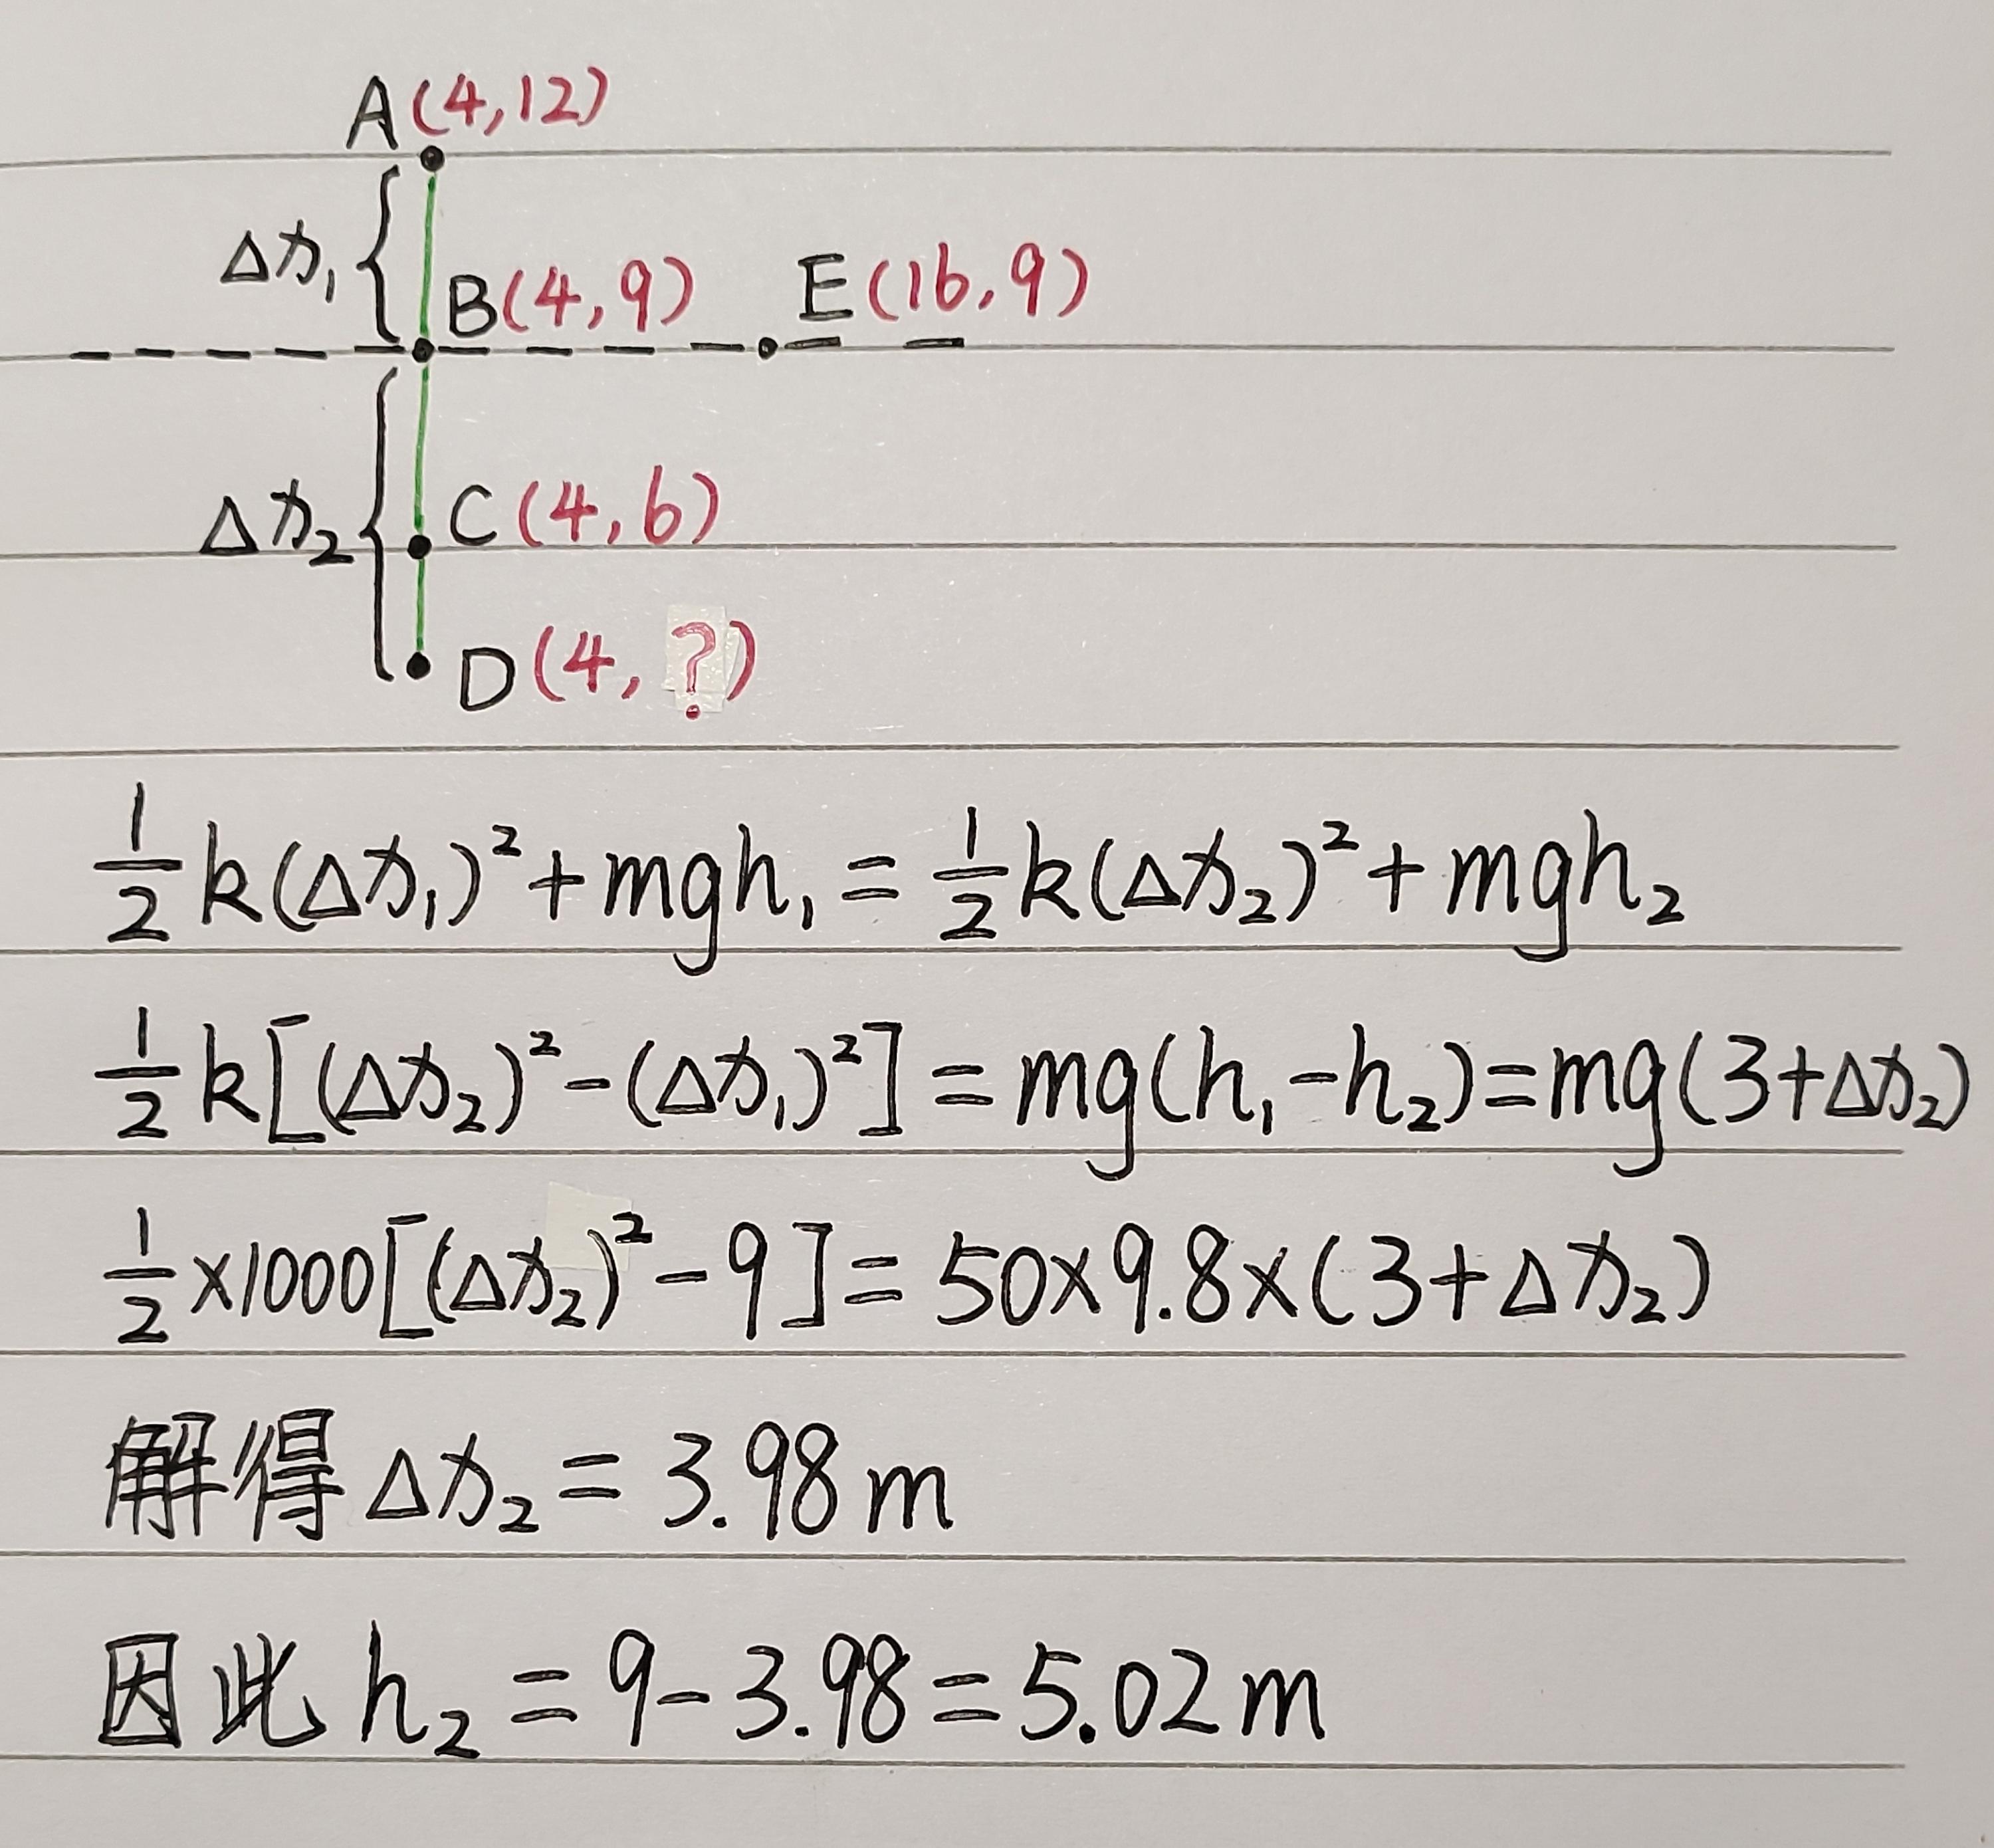 A(4,12)
Δx₁
B(4,9) E(16,9)
Δx₂ C(4,6)
D(4,?)
½k(Δx₁)²+mgh₁=½k(Δx₂)²+mgh₂
½k[(Δx₂)²-(Δx₁)²]=mg(h₁-h₂)=mg(3+Δx₂)
½×1000[(Δx₂)²-9]=50×9.8×(3+Δx₂)
解得Δx₂=3.98m
因此h₂=9-3.98=5.02m